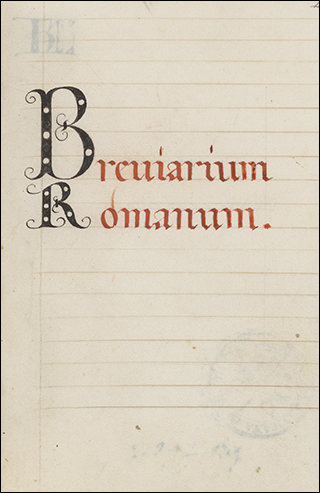 Breuiarium
Romanum.